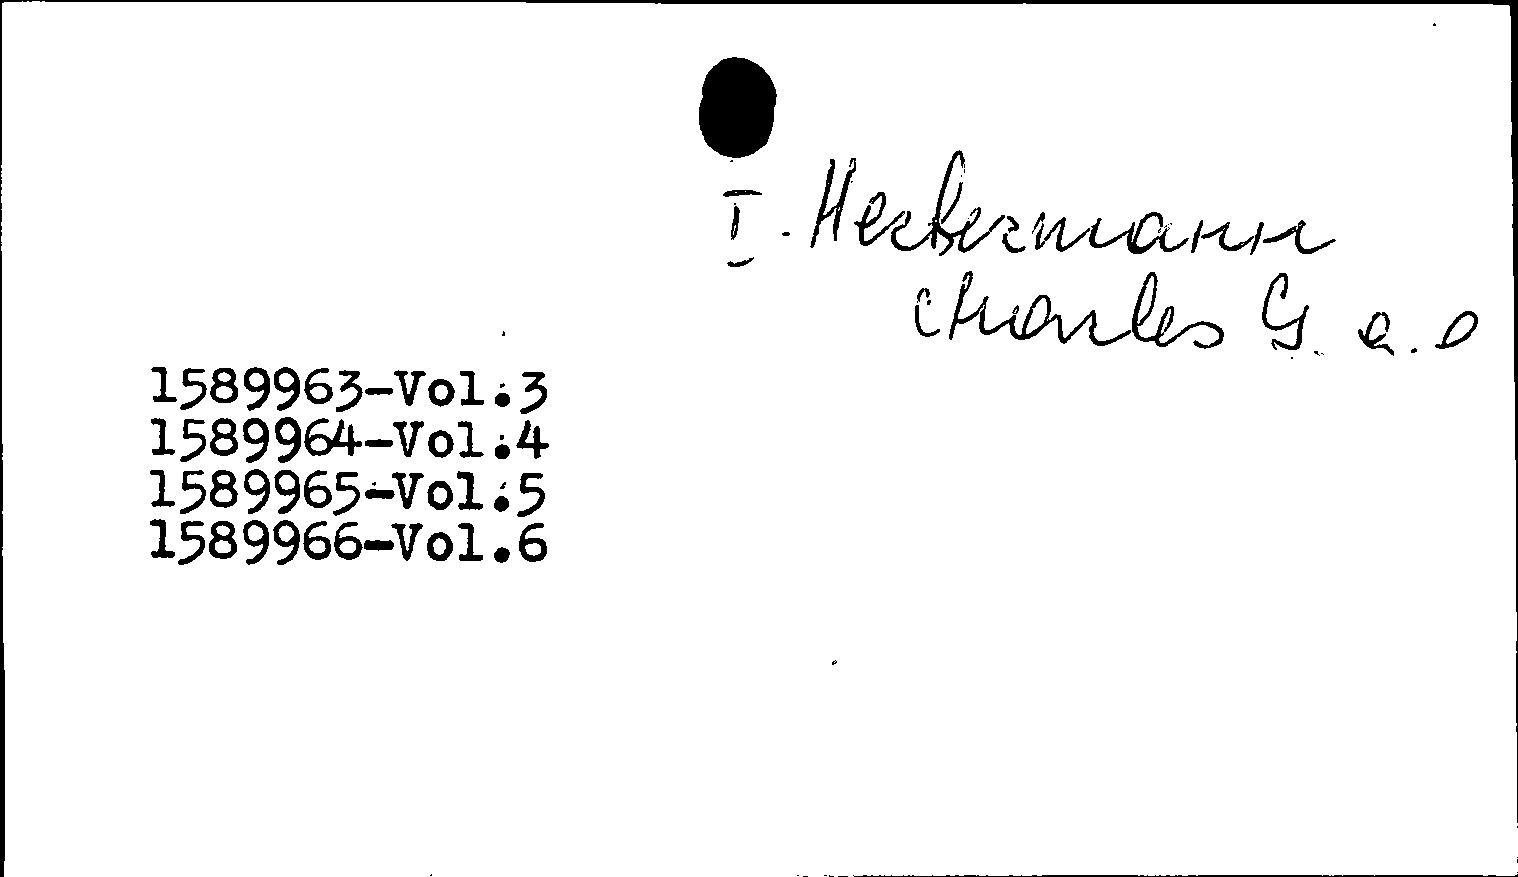 I. Herbermann
Charles G. a.o
1589963-Vol.3
1589964-Vol.4
1589965-Vol.5
1589966-Vol.6